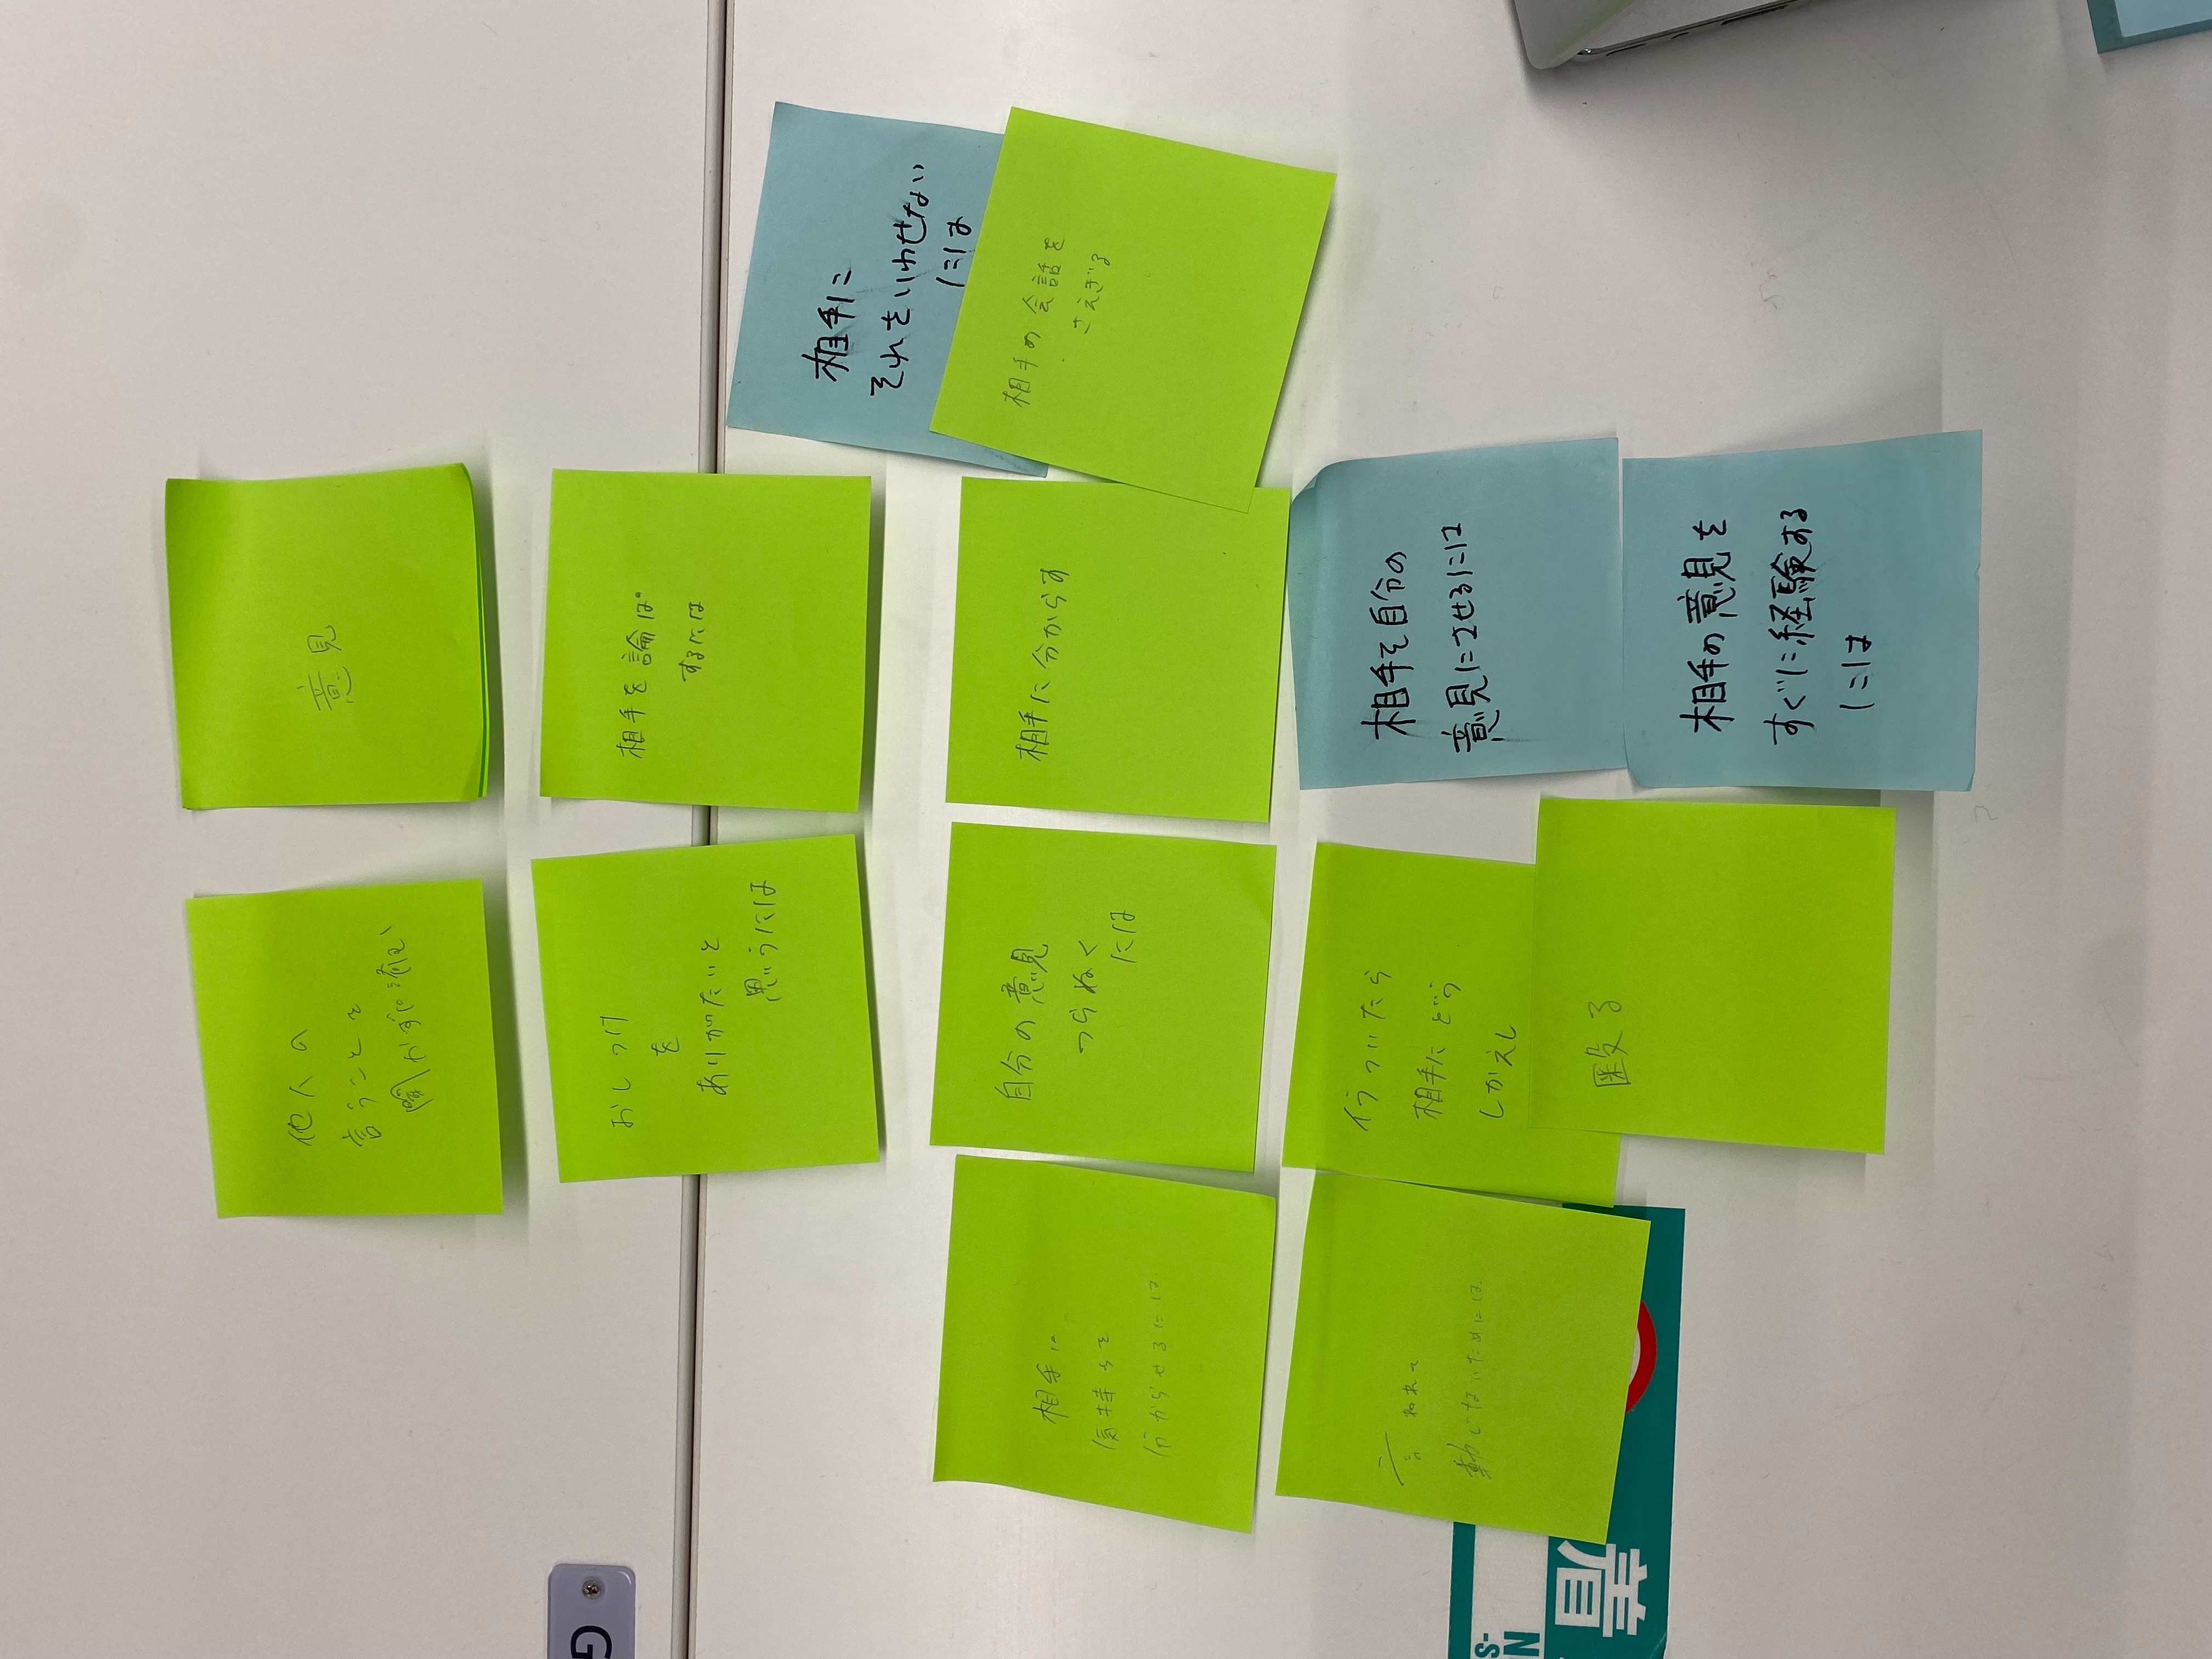 他人の
言うことを
聞かずに済む
意見
おしつけ
を
ありがたいと
思うには
相手を論ぱ
するには
相手に
それをいわせない
には
相手に
気持ちを
分からせるには
自分の意見
つらぬく
には
相手に分からす
相手の会話を
さえぎる
言われて
動じないためには
イラついたら
相手にどう
しかえし
殴る
相手を自分の
意見にさせるには
相手の意見を
すぐに経験する
には
G
S-
N
着